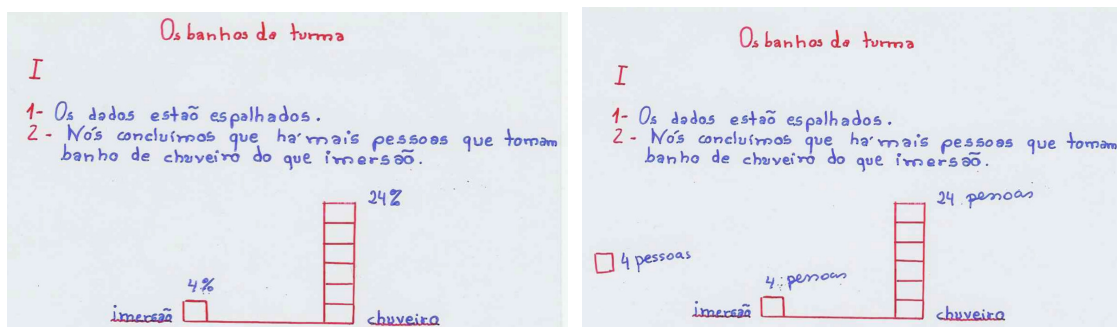 Os banhos da turma
I
1- Os dados estaõ espalhados.
2- Nós concluímos que há mais pessoas que tomam
banho de chuveiro do que imersaõ.
24%
4%
imersaõ
chuveiro
Os banhos da turma
I
1- Os dados estaõ espalhados.
2- Nós concluímos que há mais pessoas que tomam
banho de chuveiro do que imersaõ.
24 pessoas
4 pessoas
4 pessoas
imersaõ
chuveiro